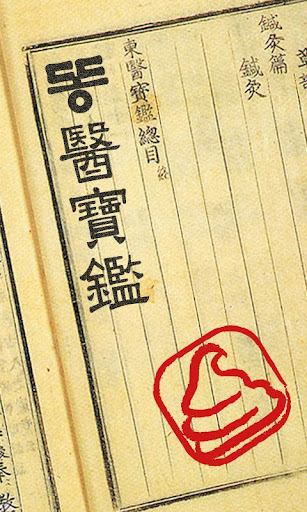 鍼灸篇
鍼灸
東醫寶鑑總目
똥醫寶鑑